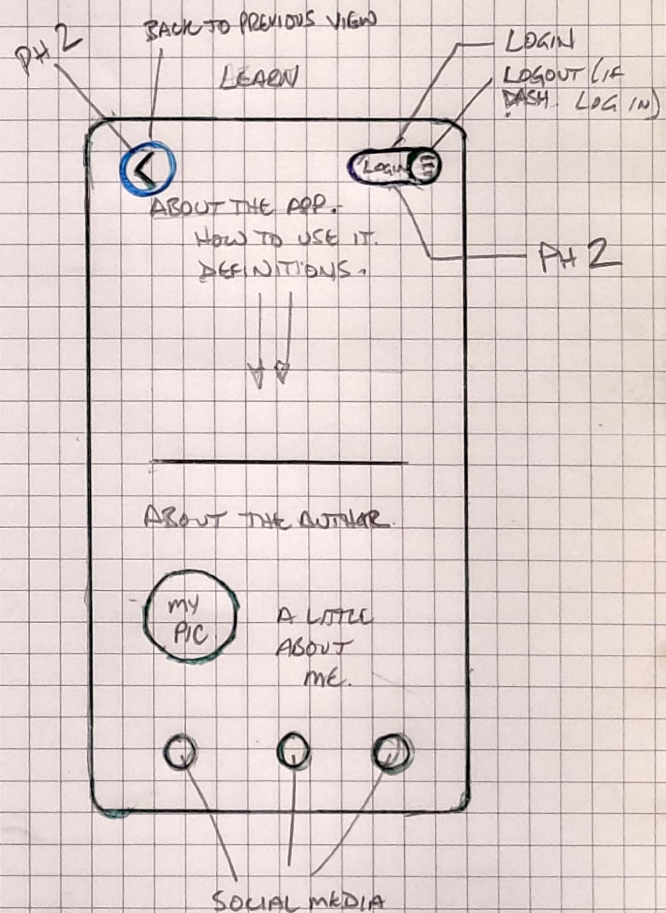 PH 2
BACK TO PREVIOUS VIEW
LEARN
LOGIN
LOGOUT (IF
DASH. LOG IN)
LOGIN
ABOUT THE APP.
HOW TO USE IT.
DEFINITIONS.
PH 2
ABOUT THE AUTHOR.
MY
PIC
A LITTLE
ABOUT
ME.
SOCIAL MEDIA